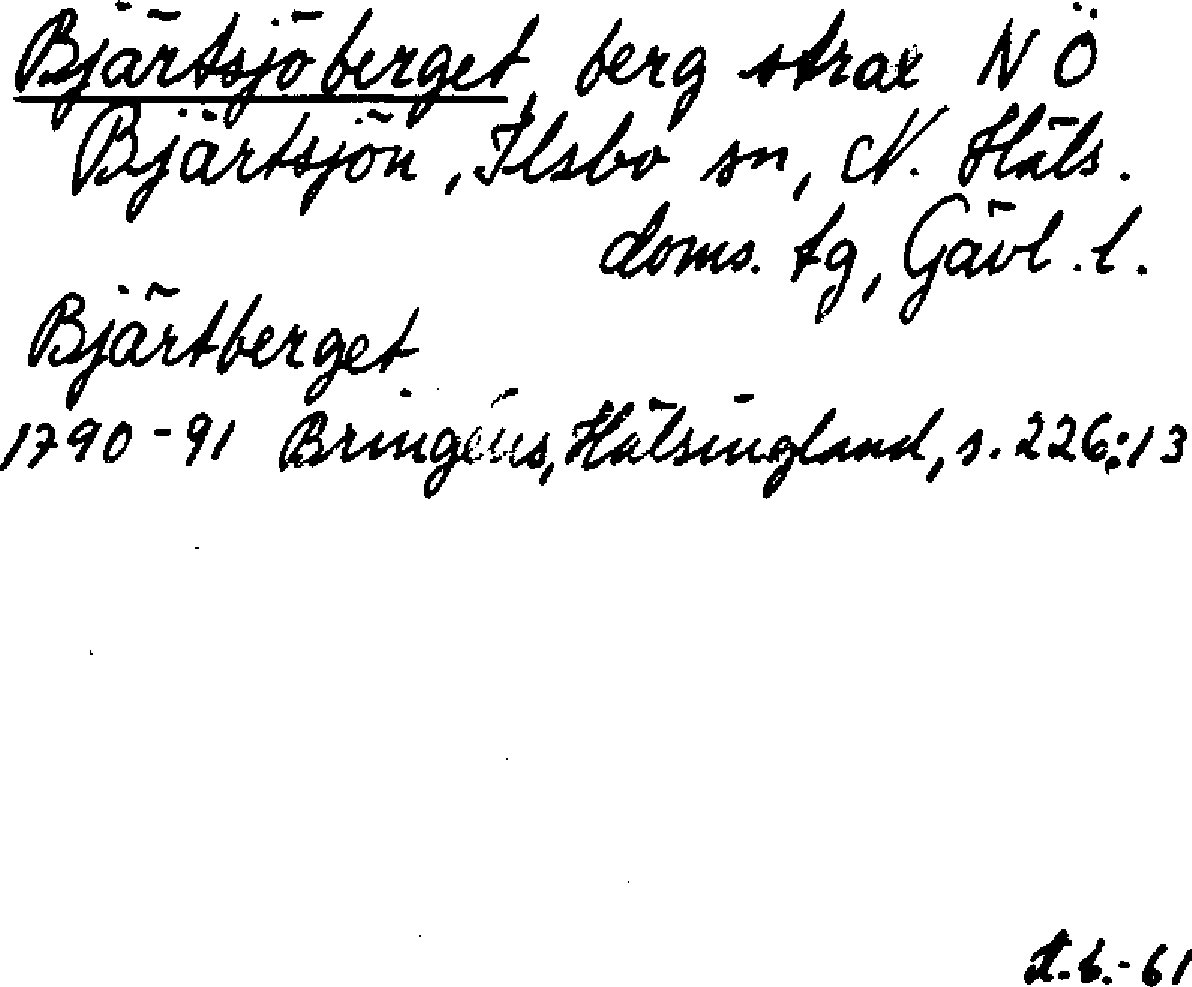 Bjärtsjöberget, berg strax NÖ
Bjärtsjön, Ilsbo sn, N. Häls.
doms. tg, Gävl. l.
Bjärtberget
1790-91 Bringéus, Hälsingland, s. 226:13
-61